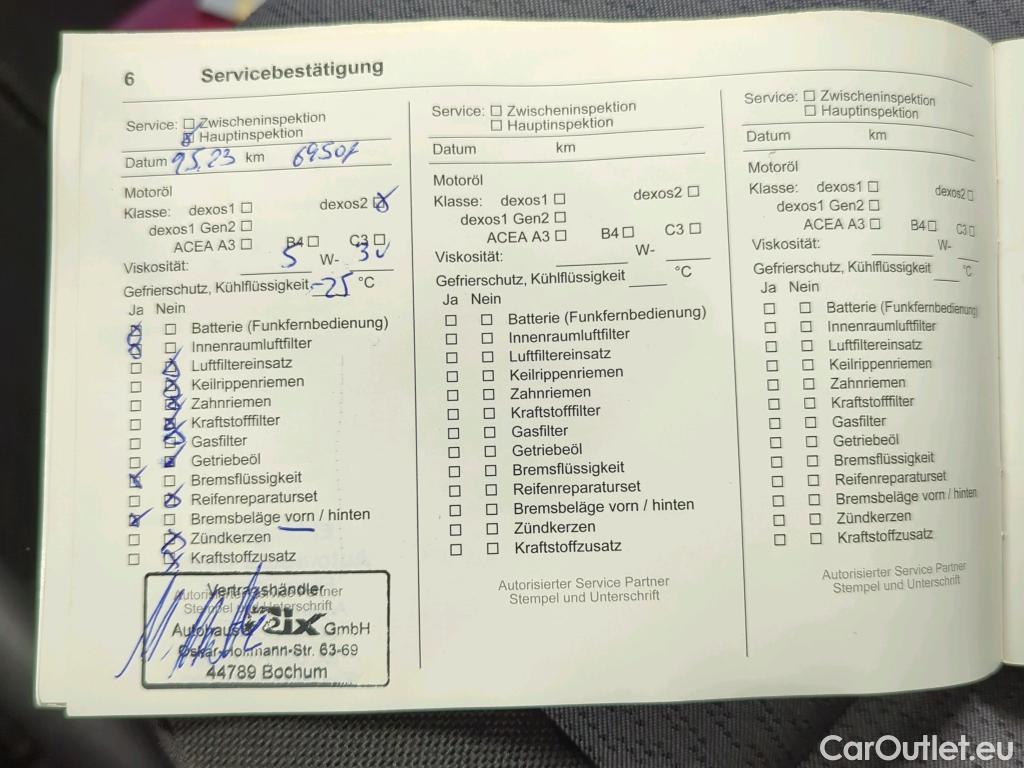 6 Servicebestätigung
Service: ☐ Zwischeninspektion
☒ Hauptinspektion
Datum 9.5.23 km
Motoröl
Klasse: dexos1 ☐ dexos2 ☒
dexos1 Gen2 ☐
ACEA A3 ☐ B4 ☐ C3 ☐
Viskosität: 5 W- 30
Gefrierschutz, Kühlflüssigkeit -25 °C
Ja Nein
☒ ☐ Batterie (Funkfernbedienung)
☒ ☐ Innenraumluftfilter
☐ ☒ Luftfiltereinsatz
☐ ☒ Keilrippenriemen
☐ ☒ Zahnriemen
☐ ☒ Kraftstofffilter
☐ ☒ Gasfilter
☐ ☒ Getriebeöl
☒ ☐ Bremsflüssigkeit
☐ ☒ Reifenreparaturset
☒ ☐ Bremsbeläge vorn / hinten
☐ ☒ Zündkerzen
☐ ☒ Kraftstoffzusatz
Vertragshändler
Autorisierter Service Partner
Stempel und Unterschrift
Autohaus Rix GmbH
Oskar-Hoffmann-Str. 63-69
44789 Bochum
Service: ☐ Zwischeninspektion
☐ Hauptinspektion
Datum km
Motoröl
Klasse: dexos1 ☐ dexos2 ☐
dexos1 Gen2 ☐
ACEA A3 ☐ B4 ☐ C3 ☐
Viskosität: W-
Gefrierschutz, Kühlflüssigkeit °C
Ja Nein
☐ ☐ Batterie (Funkfernbedienung)
☐ ☐ Innenraumluftfilter
☐ ☐ Luftfiltereinsatz
☐ ☐ Keilrippenriemen
☐ ☐ Zahnriemen
☐ ☐ Kraftstofffilter
☐ ☐ Gasfilter
☐ ☐ Getriebeöl
☐ ☐ Bremsflüssigkeit
☐ ☐ Reifenreparaturset
☐ ☐ Bremsbeläge vorn / hinten
☐ ☐ Zündkerzen
☐ ☐ Kraftstoffzusatz
Autorisierter Service Partner
Stempel und Unterschrift
Service: ☐ Zwischeninspektion
☐ Hauptinspektion
Datum km
Motoröl
Klasse: dexos1 ☐ dexos2 ☐
dexos1 Gen2 ☐
ACEA A3 ☐ B4 ☐ C3 ☐
Viskosität: W-
Gefrierschutz, Kühlflüssigkeit °C
Ja Nein
☐ ☐ Batterie (Funkfernbedienung)
☐ ☐ Innenraumluftfilter
☐ ☐ Luftfiltereinsatz
☐ ☐ Keilrippenriemen
☐ ☐ Zahnriemen
☐ ☐ Kraftstofffilter
☐ ☐ Gasfilter
☐ ☐ Getriebeöl
☐ ☐ Bremsflüssigkeit
☐ ☐ Reifenreparaturset
☐ ☐ Bremsbeläge vorn / hinten
☐ ☐ Zündkerzen
☐ ☐ Kraftstoffzusatz
Autorisierter Service Partner
Stempel und Unterschrift
CarOutlet.eu